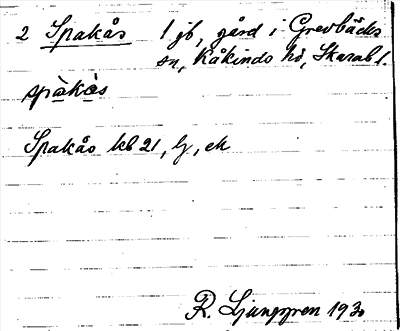 2 Spakås 1 jb, gård i Grevbäcks
sn, Kåkinds hd, Skarab l.
spàkås
Spakås kb 21, lj, ek
R. Ljunggren 1930